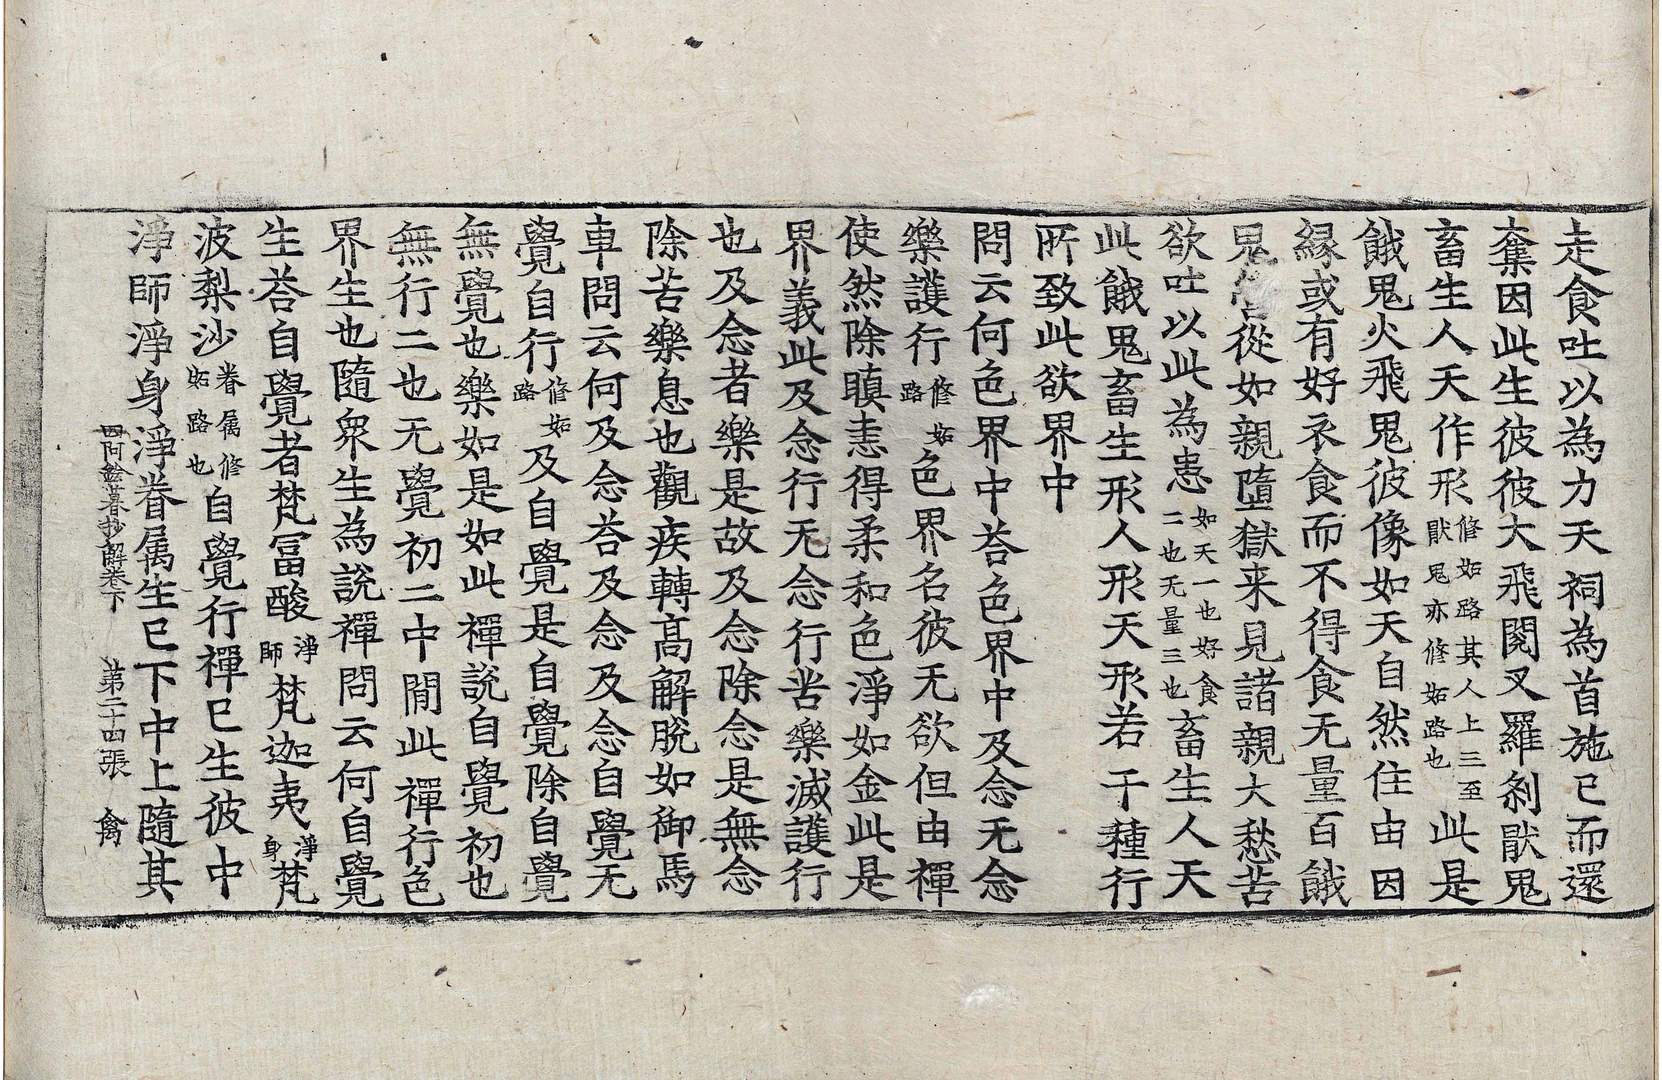 走食吐以為力天祠為首施已而還
棄因此生彼彼大飛閱叉羅剎猒鬼
畜生人天作形修妬路其人上三至猒鬼亦修妬路也此是
餓鬼火飛鬼彼像如天自然住由因
緣或有好衣食而不得食无量百餓
鬼從如親墮獄来見諸親大愁苦
欲吐以此為患如天一也好食二也无量三也畜生人天
此餓鬼畜生形人形天形若干種行
所致此欲界中
問云何色界中荅色界中及念无念
樂護行修妬路色界名彼无欲但由禪
使然除瞋恚得柔和色淨如金此是
界義此及念行无念行苦樂滅護行
也及念者樂是故及念除念是無念
除苦樂息也觀疾轉髙解脫如御馬
車問云何及念荅及念及念自覺无
覺自行修妬路及自覺是自覺除自覺
無覺也樂如是如此禪說自覺初也
無行二也无覺初二中間此禪行色
界生也隨衆生為說禪問云何自覺
生荅自覺者梵冨酸淨師梵迦夷淨身梵
波梨沙眷属修妬路也自覺行禪已生彼中
淨師淨身淨眷属生已下中上隨其
四阿鋡暮抄解卷下 第二十四張 禽